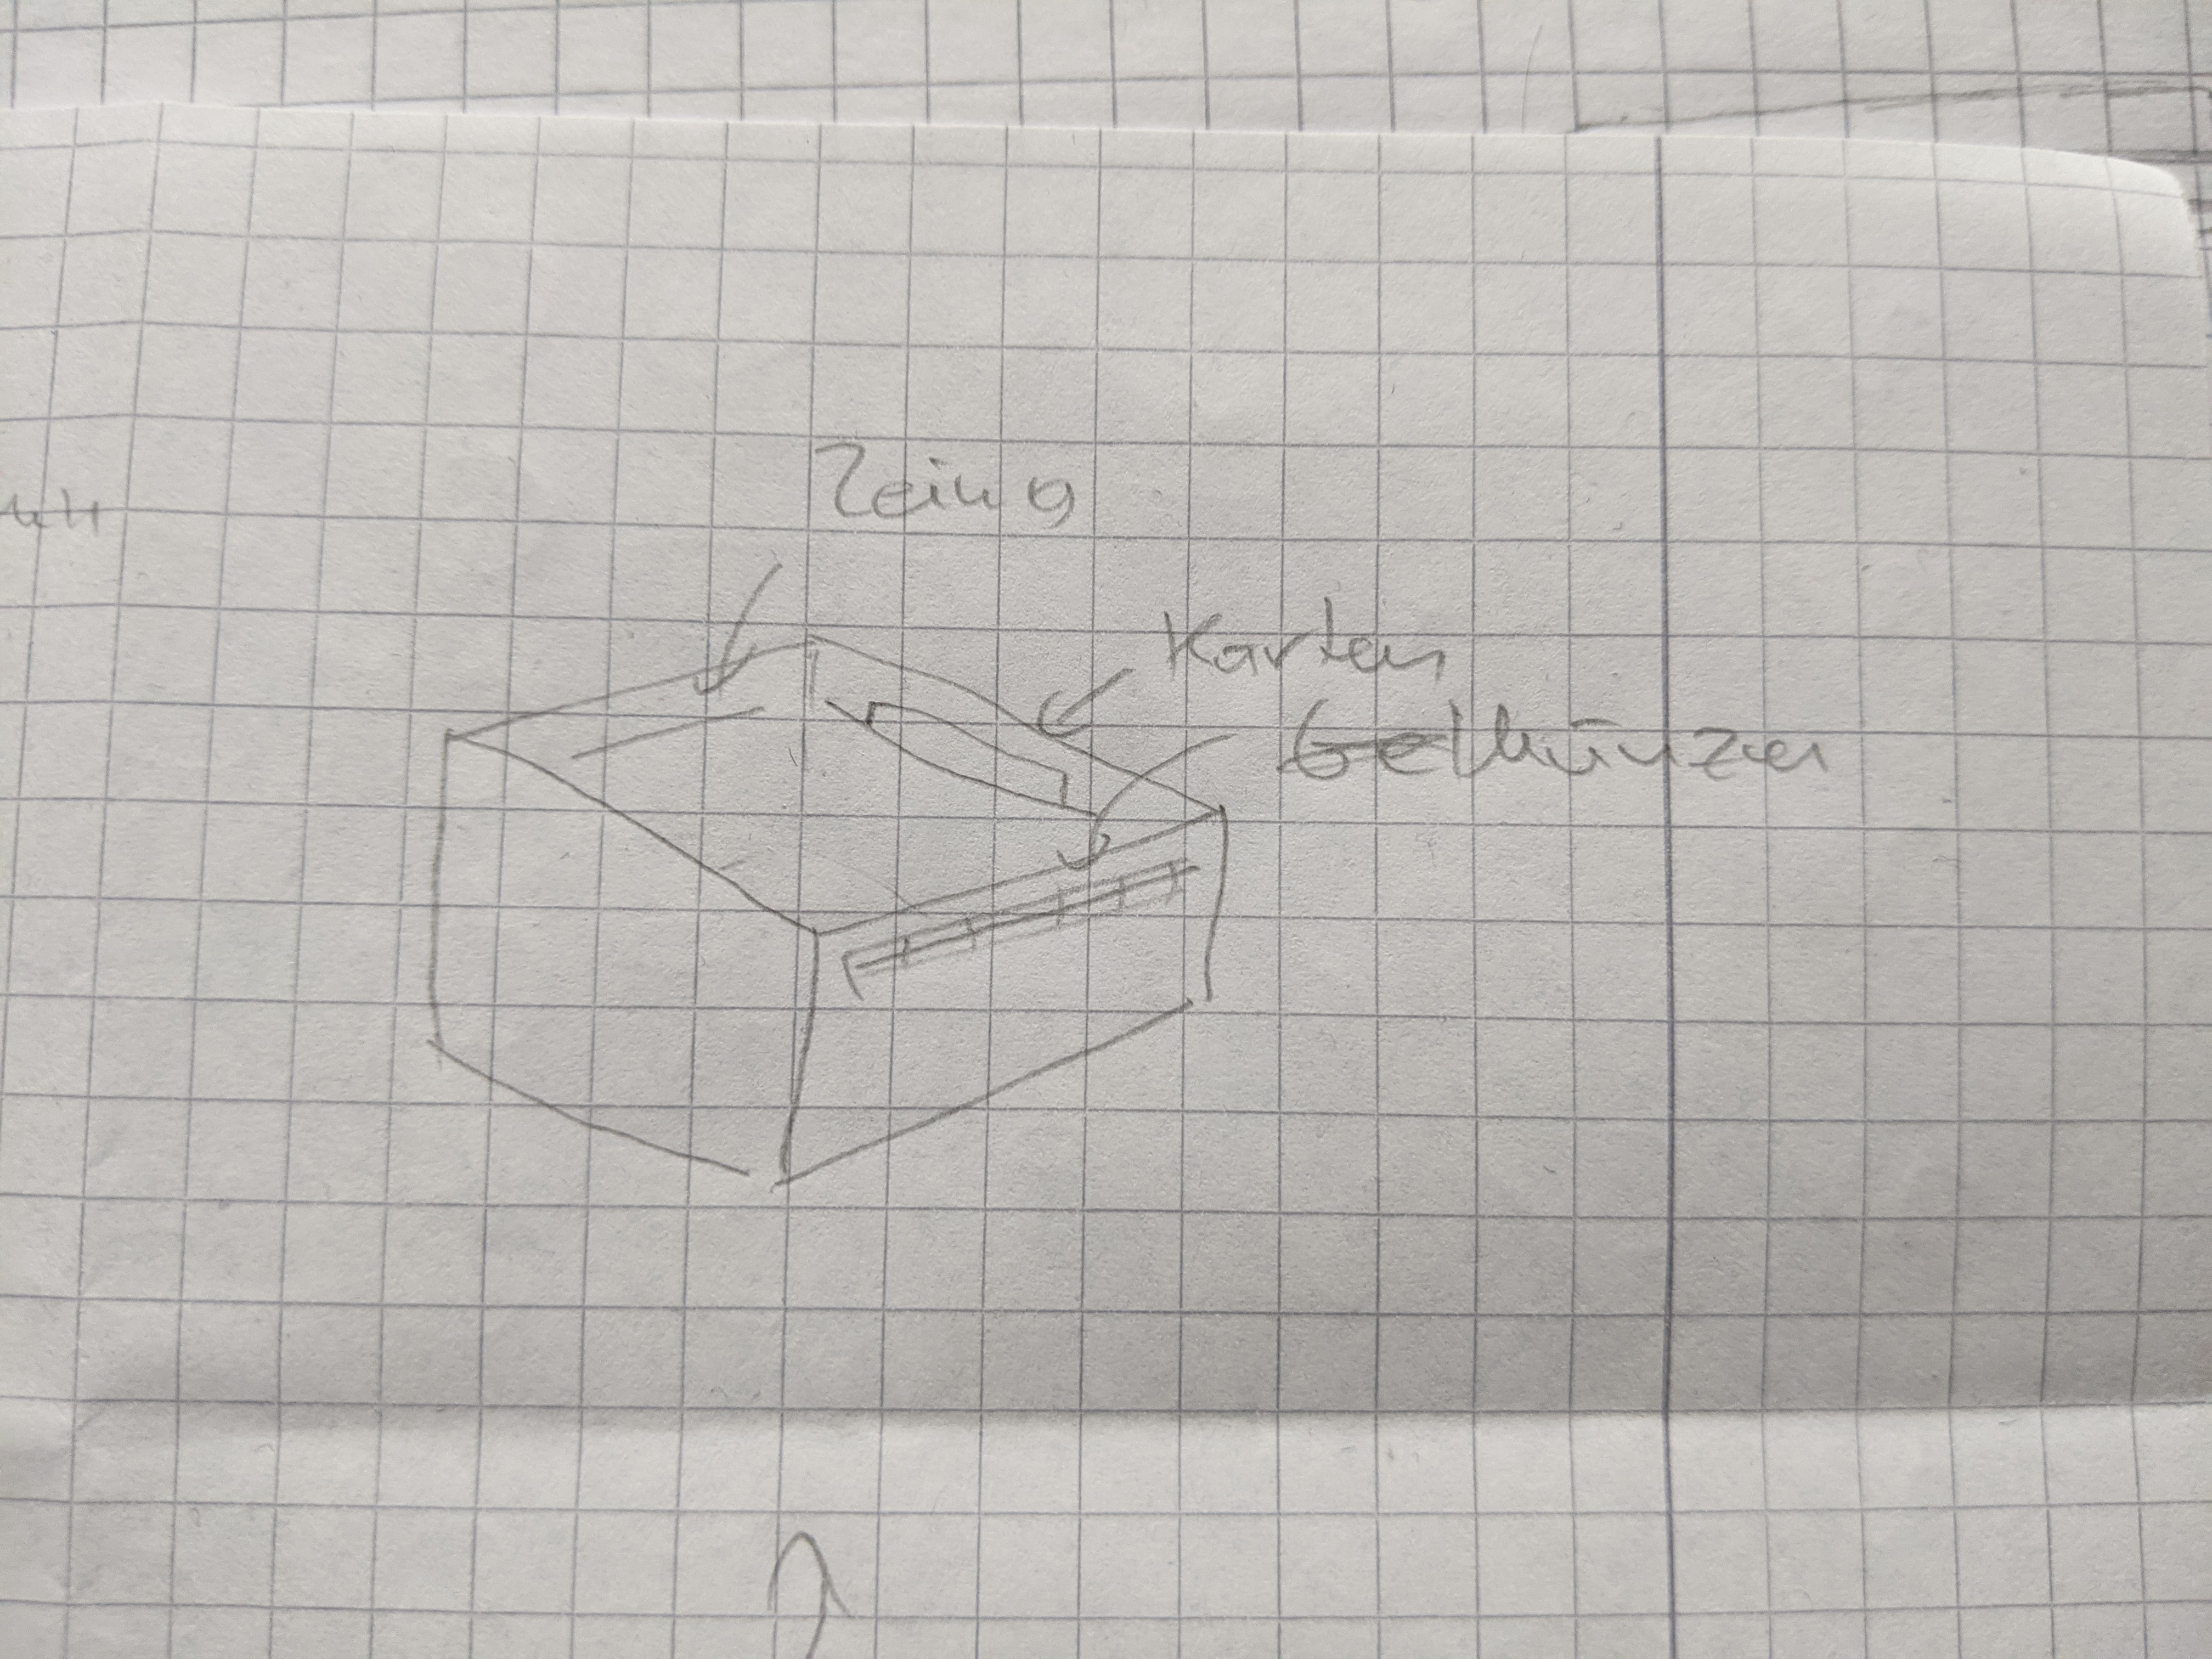 Zeing
Karten
Gelmünzen